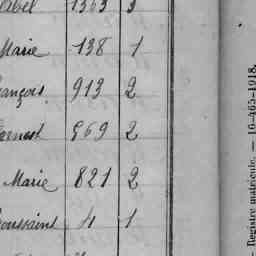 1363 3
Marie 138 1
François 913 2
Ernest 969 2
Marie 821 2
Toussaint 4 1
Registre matricule. — 10-465-1918.